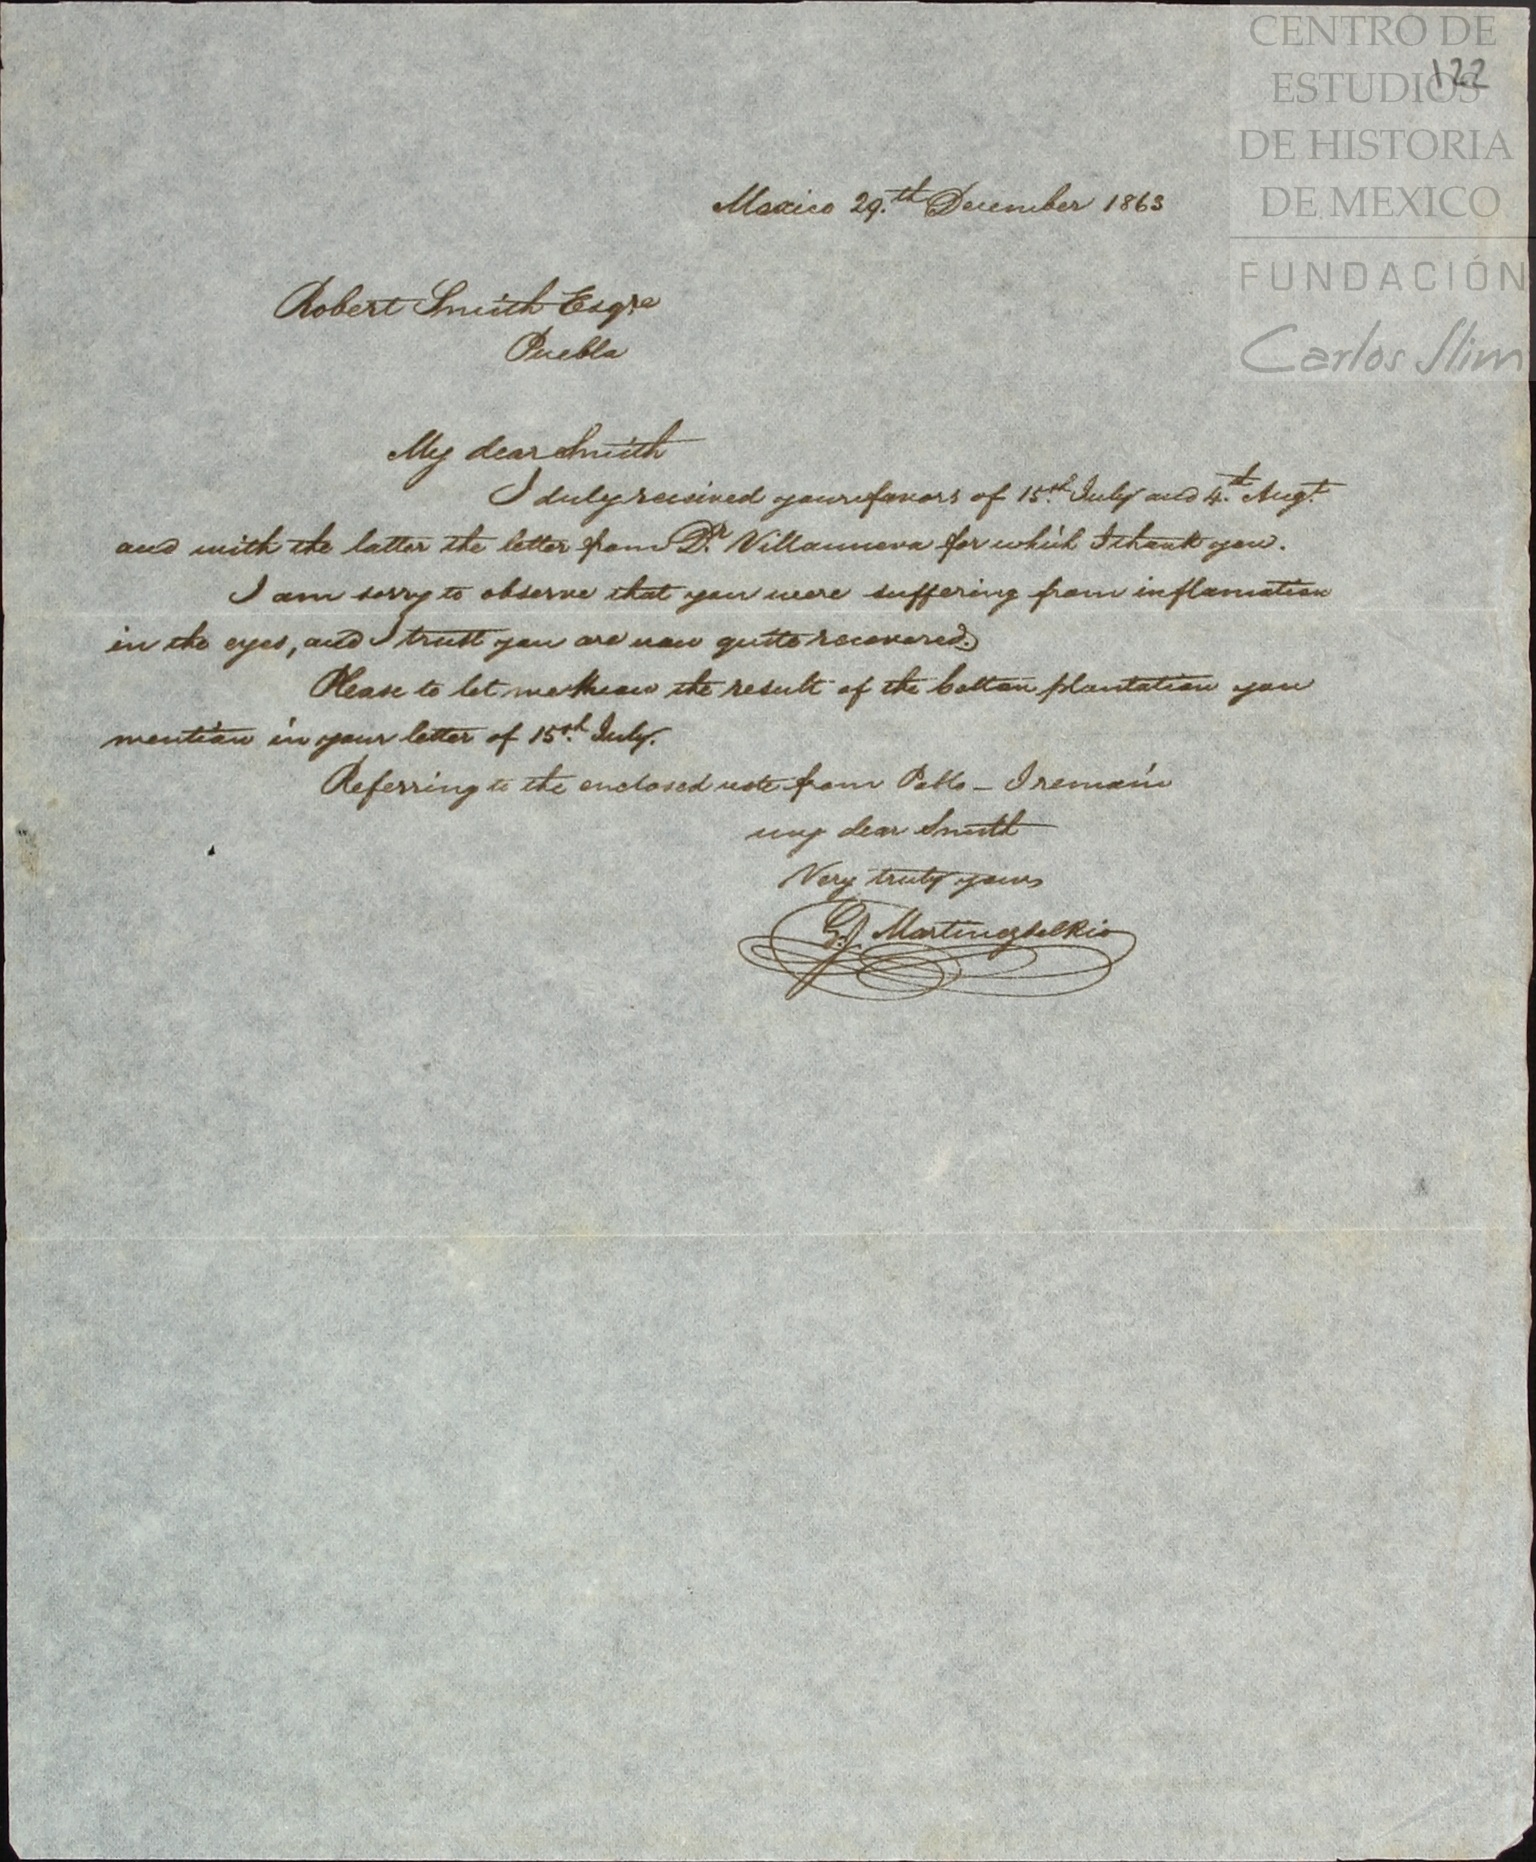 CENTRO DE
ESTUDIOS
DE HISTORIA
DE MEXICO
FUNDACIÓN
Carlos Slim
122
Mexico 29.th December 1863
Robert Smith Esqre
Puebla
My dear Smith
I duly received your favors of 15.th July and 4.th Augt.
and with the latter the letter from Dr. Villanueva for which I thank you.
I am sorry to observe that you were suffering from inflamation
in the eyes, and I trust you are now quite recovered.
Please to let me know the result of the Cotton plantation you
mention in your letter of 15.th July.
Referring to the enclosed note from Pablo - I remain
my dear Smith
Very truly yours
G. J. Martinez del Rio